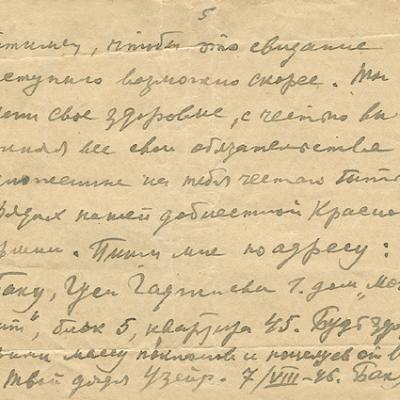 5
тимся, чтобы это свидание
наступило возможно скорее. Ты
свое здоровье, с честью вы
все свои обязательства
на тебя честью быть
рядах нашей доблестной Красно
Армии. Пиши мне по адресу:
Баку, Уси Гаджиева 1. дом „Мо
", блок 5, квартира 45. Будь здо
массу поклонов и поцелуев от в
Твой дядя Узеир. 7/VIII-46. Баку